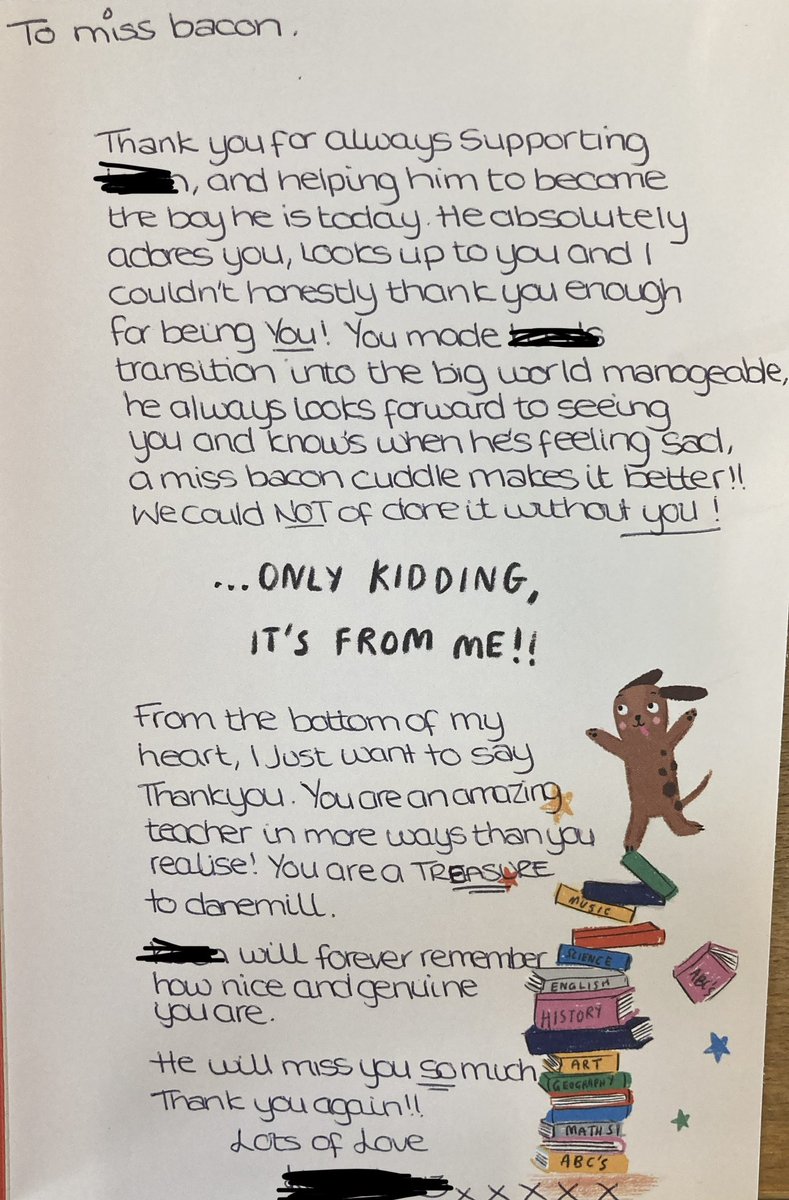 To miss bacon.
Thank you for always supporting
, and helping him to become
the boy he is today. He absolutely
adores you, looks up to you and I
couldn't honestly thank you enough
for being You! You made
transition into the big world manageable,
he always looks forward to seeing
you and know's when he's feeling sad,
a miss bacon cuddle makes it better!!
We could NOT of done it without you!
...ONLY KIDDING,
IT'S FROM ME!!
From the bottom of my
heart, I Just want to say
Thankyou. You are an amazing
teacher in more ways than you
realise! You are a TREASURE
to danemill.
will forever remember
how nice and genuine
you are.
He will miss you so much
Thank you again!!
Lots of Love
x x x x x
MUSIC
SCIENCE
ABC'S
ENGLISH
HISTORY
ART
GEOGRAPHY
MATHS!
ABC'S